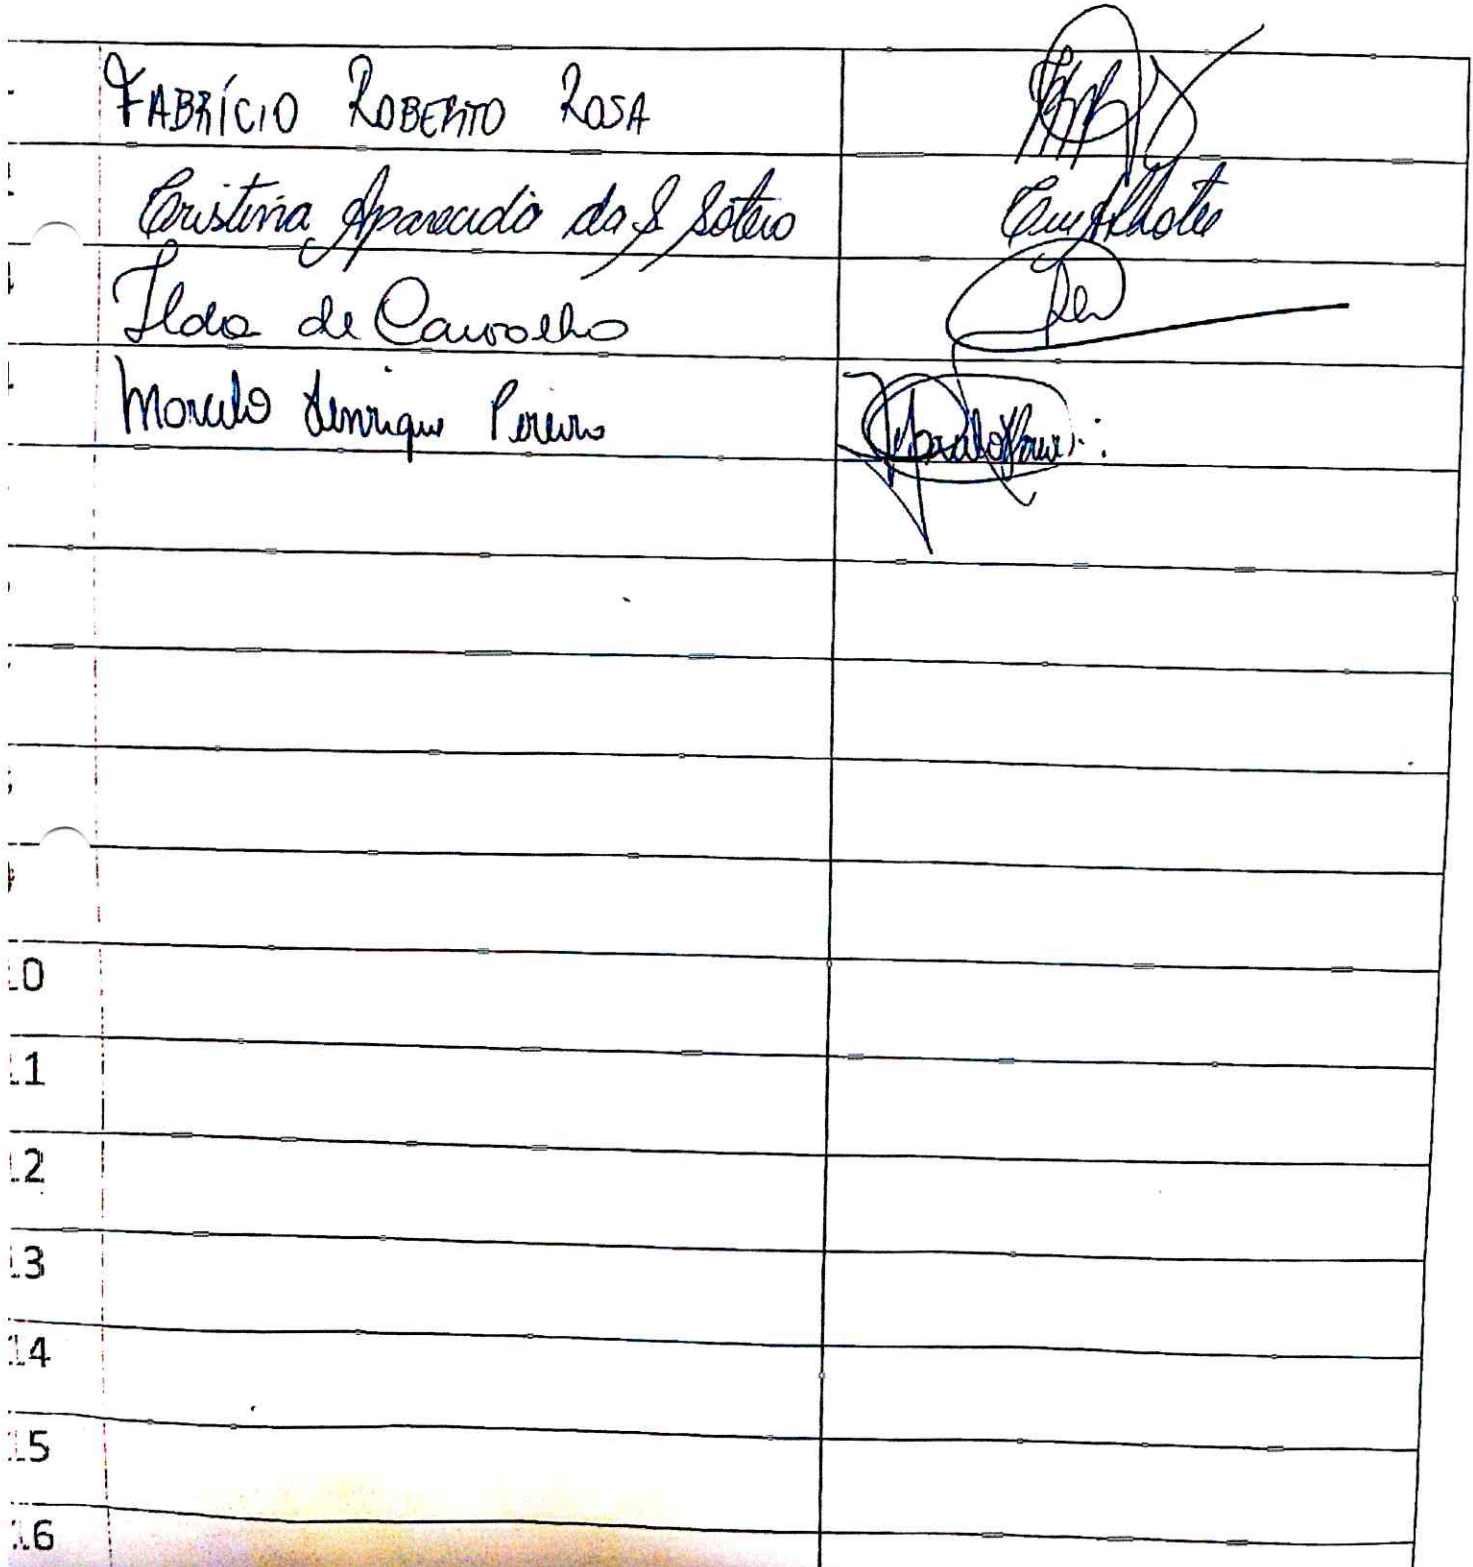 FABRÍCIO ROBERTO ROSA
Cristina Aparecida da S Sotero
Ilda de Carvalho
Marcelo Henrique Pereira
10
11
12
13
14
15
16